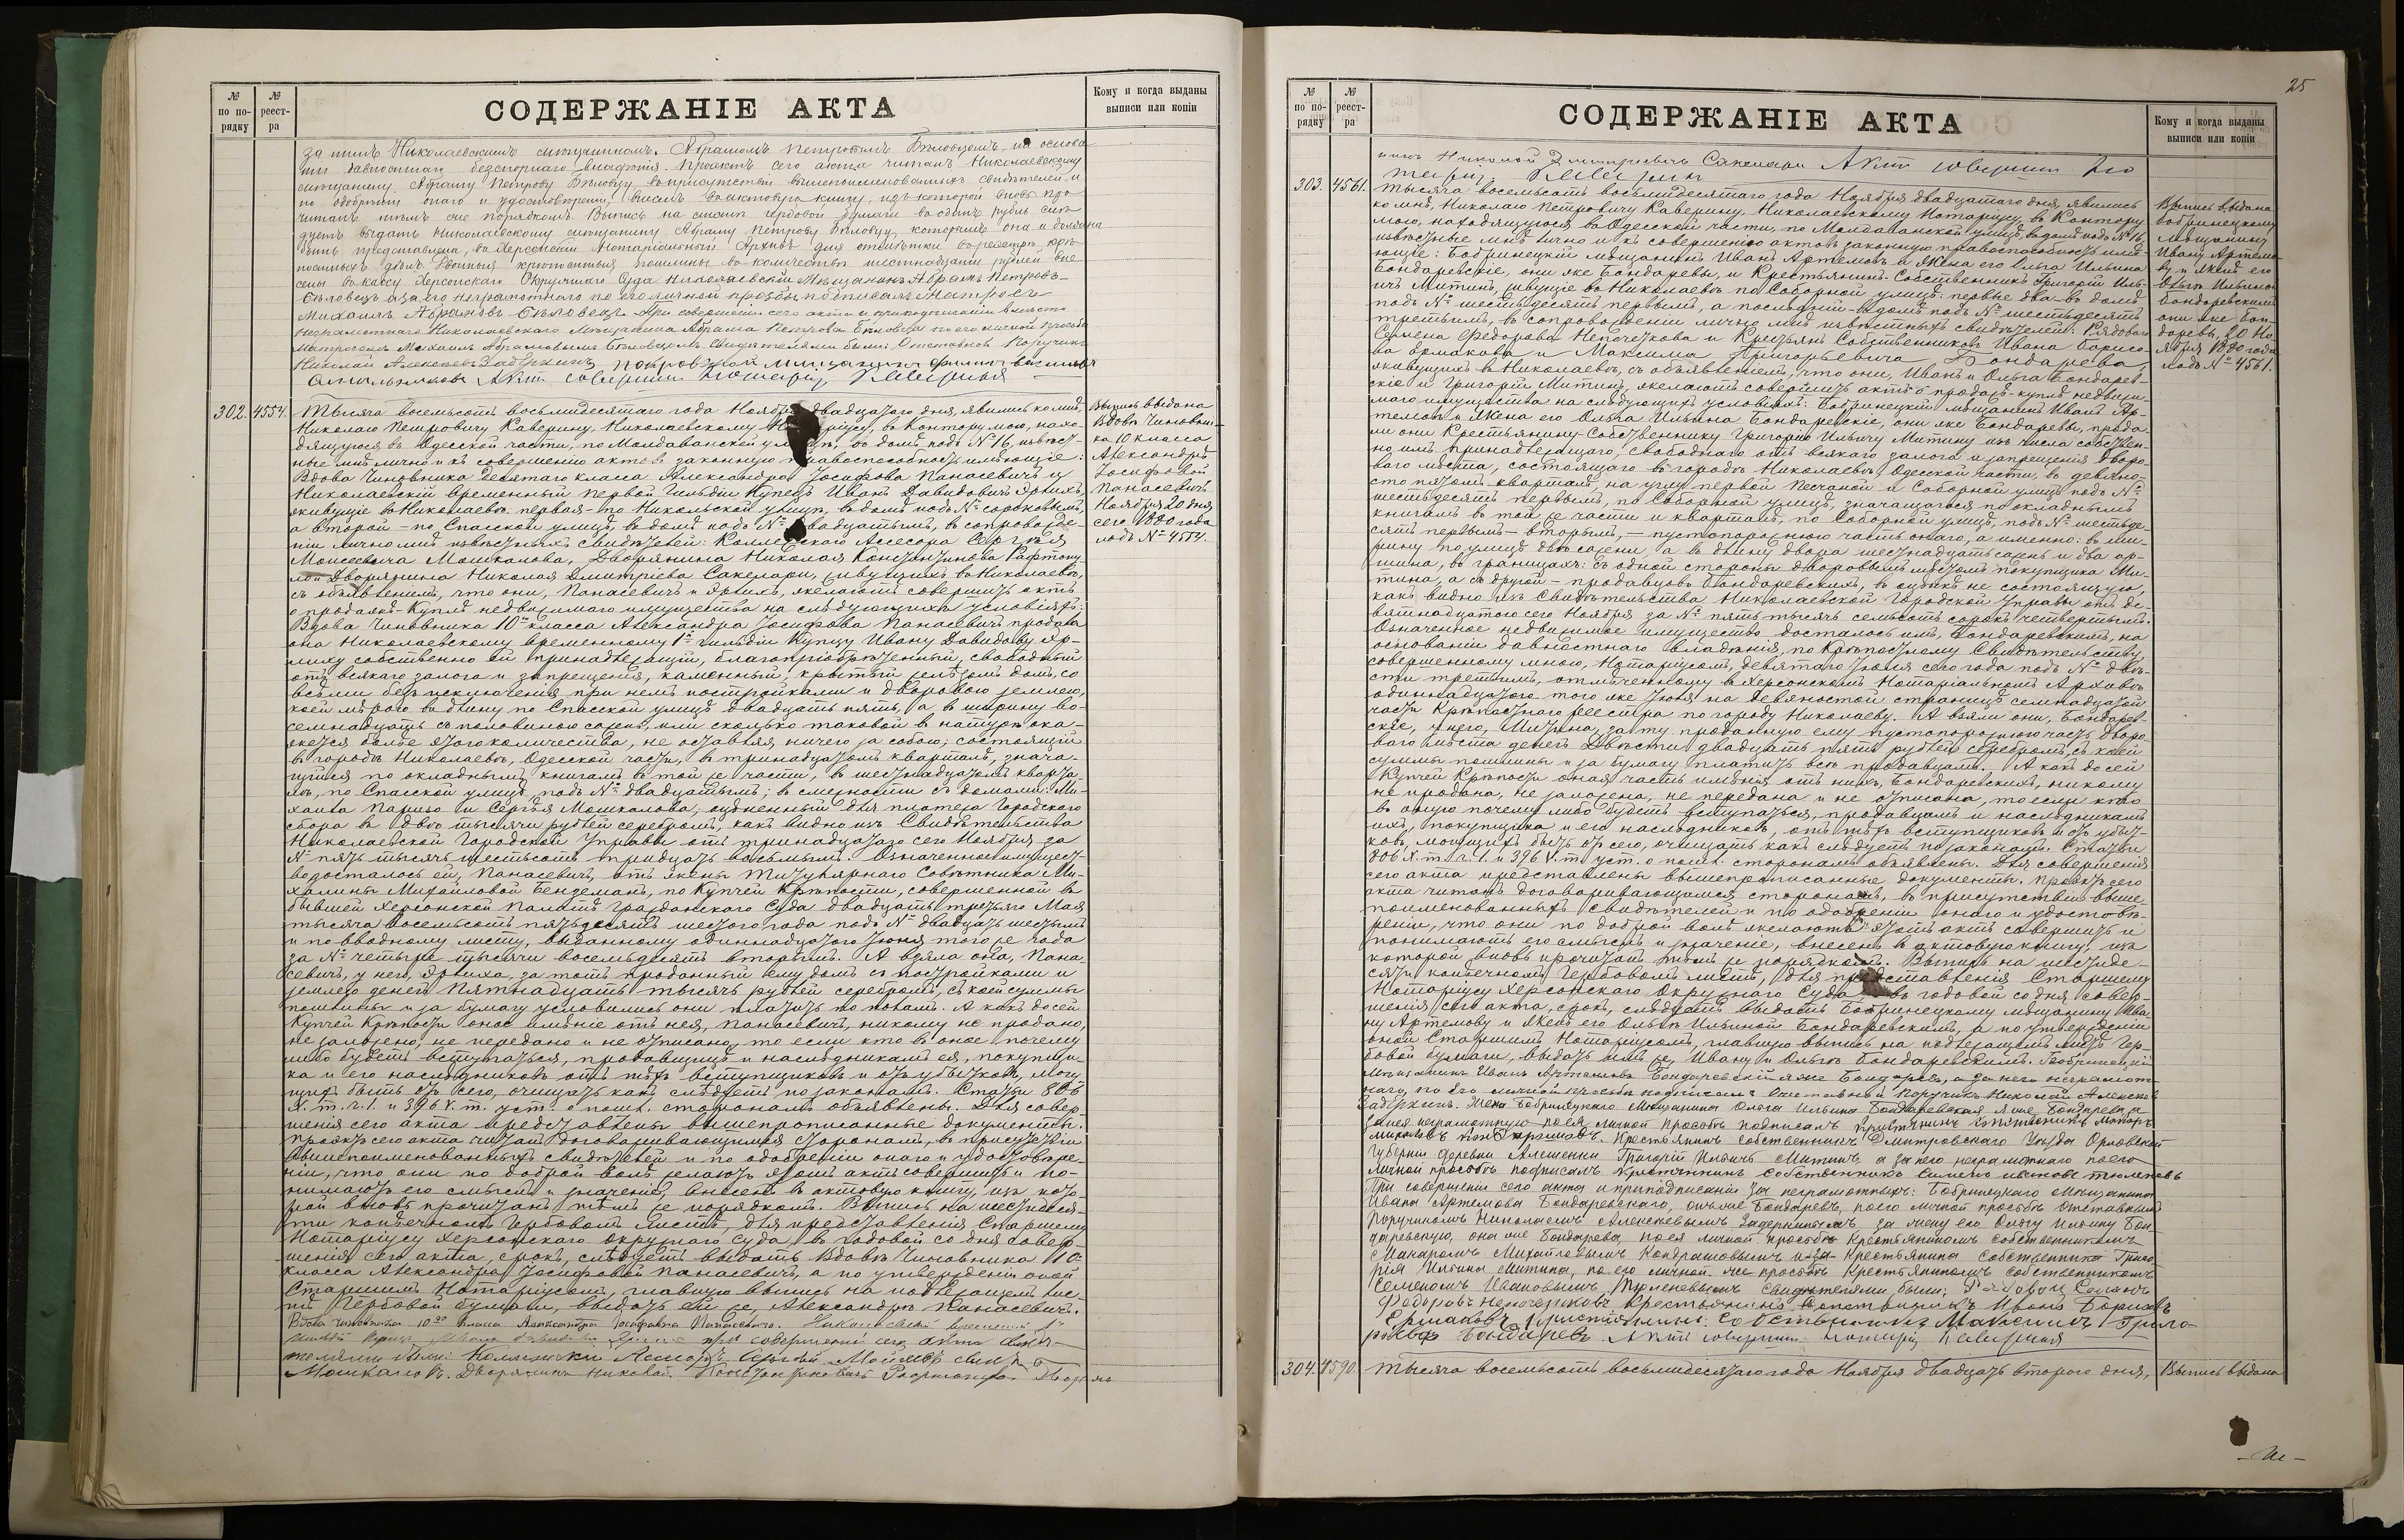 № по по-рядку
№ реест-ра
СОДЕРЖАНІЕ АКТА
Кому и когда выданы выписи или копіи
за нимъ Николаевскимъ мѣщаниномъ Абрамомъ Петровымъ Бѣловецомъ, на основа-
ніи давностнаго безспорнаго владѣнія. Проэктъ сего акта читанъ Николаевскому
мѣщанину Абраму Петрову Бѣловцу въ присутствіи вышепоименованныхъ свидѣтелей и
по одобреніи онаго и удостовѣреніи, внесенъ въ актовую книгу, изъ которой вновь про-
читанъ тѣмъ же порядкомъ. Выпись на листѣ гербовой бумаги въ одинъ рубль слѣ-
дуетъ выдать Николаевскому мѣщанину Абраму Петрову Бѣловцу, которымъ она и должна
быть представлена въ Херсонскій Нотаріальный Архивъ для отмѣтки въ реестрѣ крѣ-
постныхъ дѣлъ. Крѣпостныя пошлины въ количествѣ шестнадцати рублей вне
сены въ кассу Херсонскаго Окружнаго Суда. Николаевскій Мѣщанинъ Абрамъ Петровъ
Бѣловецъ а за его неграмотнаго по его личной просьбѣ подписалъ Матросъ
Михаилъ Абрамовъ Бѣловецъ. При совершеніи сего акта и рукоприкладствѣ вмѣсто
неграмотнаго Николаевскаго Мѣщанина Абрама Петрова Бѣловца по его личной просьбѣ
Матросомъ Михаиломъ Абрамовымъ Бѣловецомъ свидѣтелями были: Отставной Поручикъ
Николай Алексѣевъ Задеркинъ,
Актъ совершилъ Нотаріусъ Каверинъ
302. 4554. Тысяча восемьсотъ восьмидесятаго года Ноября двадцатаго дня, явились ко мнѣ,
Николаю Петровичу Каверину, Николаевскому Нотаріусу, въ Контору мою, нахо-
дящуюся въ Одесской части, по Молдаванской улицѣ, въ домѣ подъ № 16, извѣст-
ные мнѣ лично и къ совершенію актовъ законную правоспособность имѣющіе:
Вдова Чиновника десятаго класса Александра Іосифова Панасевичъ и
Николаевскій временный первой гильдіи Купецъ Иванъ Давидовичъ Эрлихъ,
живущіе въ Николаевѣ первая-по Никольской улицѣ, въ домѣ подъ № сороковымъ,
а второй-по Спасской улицѣ, въ домѣ подъ № двадцатымъ, въ сопровожде-
ніи лично мнѣ извѣстныхъ свидѣтелей: Коллежскаго Ассесора Сергѣя
Моисеевича Мошкалова, Дворянина Николая Константинова Рафтопу-
ло и Дворянина Николая Дмитріева Сакелари, живущихъ въ Николаевѣ,
съ объявленіемъ, что они, Панасевичъ и Эрлихъ, желаютъ совершить актъ
о продажѣ-куплѣ недвижимаго имущества на слѣдующихъ условіяхъ:
Вдова Чиновника 10го класса Александра Іосифова Панасевичъ продала
она Николаевскому временному 1й гильдіи Купцу Ивану Давидову Эр-
лиху собственно ей принадлежащій, благопріобрѣтенный, свободный
отъ всякаго залога и запрещенія, каменный, крытый желѣзомъ домъ, со
всѣми безъ исключенія при немъ постройками и дворовою землею,
коей мѣрою въ длину по Спасской улицѣ двадцать пять, а въ ширину во-
семнадцать съ половиною сажень, или сколько таковой въ натурѣ ока-
жется болѣе этого количества, не оставляя ничего за собою; состоящій
въ городѣ Николаевѣ, Одесской части, въ тринадцатомъ кварталѣ, знача-
щійся по окладнымъ книгамъ въ той же части, въ шестнадцатомъ кварта-
лѣ, по Спасской улицѣ, подъ № двадцатымъ; въ смежности съ домами: Ми-
хаила Паризо и Сергѣя Мошкалова, оцѣненный для платежа Городскаго
сбора въ двѣ тысячи рублей серебромъ, какъ видно изъ Свидѣтельства
Николаевской Городской Управы отъ тринадцатаго сего Ноября за
№ пять тысячъ шестьсотъ тридцать восьмымъ. Означенное имущест-
во досталось ей, Панасевичъ, отъ жены Титулярнаго Совѣтника Ми-
халины Михайловой Бендеманъ, по Купчей Крѣпости, совершенной въ
бывшей Херсонской Палатѣ Гражданскаго Суда двадцать третьяго Мая
тысяча восемьсотъ пятьдесятъ шестого года подъ № двадцать шестымъ
и по вводному листу, выданному одиннадцатаго Іюня того же года
за № четыре тысячи восемьдесятъ вторымъ. А взяла она, Пана-
севичъ, у него, Эрлиха, за тотъ проданный ему домъ съ постройками и
землею денегъ Пятнадцать тысячъ рублей серебромъ, съ коей суммы
пошлины и за бумагу условились они платить по поламъ. А какъ до сей
Купчей Крѣпости оное имѣніе отъ нея, Панасевичъ, никому не продано,
не заложено, не передано и не описано, то если кто въ оное почему
либо будетъ вступаться, продавицѣ и наслѣдникамъ ея, покупщи-
ка и его наслѣдниковъ отъ тѣхъ вступщиковъ и отъ убытковъ, могу
щихъ быть отъ сего, очищать какъ слѣдуетъ по законамъ. Статьи 806
X. т. ч. 1. и 396 V. т. уст. о пошл. сторонамъ объявлены. Для совер-
шенія сего акта представлены вышепрописанные документы.
Проэктъ сего акта читанъ договаривающимся сторонамъ, въ присутствіи
вышепоименованныхъ свидѣтелей и по одобреніи онаго и удостовѣре-
ніи, что они по доброй волѣ желаютъ этотъ актъ совершить и по-
нимаютъ его смыслъ и значеніе, внесенъ въ актовую книгу, изъ кото-
рой вновь прочитанъ тѣмъ же порядкомъ. Выпись на шестидеся-
ти копѣечномъ гербовомъ листѣ, для представленія Старшему
Нотаріусу Херсонскаго Окружнаго Суда, въ годовой со дня совер-
шенія сего акта, срокъ, слѣдуетъ выдать Вдовѣ Чиновника 10го
класса Александрѣ Іосифовой Панасевичъ, а по утвержденіи оной
Старшимъ Нотаріусомъ, главную выпись на надлежащемъ лис-
тѣ Гербовой бумаги, выдать ей же, Александрѣ Панасевичъ.
Вдова чиновника 10го класса Александра Іосифовна Панасевичъ. Николаевскій временный 1й
гильдіи Купецъ Иванъ Давидовичъ Эрлихъ при совершеніи сего акта свидѣ-
телями были: Коллежскій Ассесоръ Сергѣй Моисеевъ сынъ
Мошкаловъ. Дворянинъ Николай Константиновичъ Рафтопуло. Дворян
Выпись выдана
Вдовѣ Чиновни-
ка 10 класса
Александрѣ
Іосифовой
Панасевичъ
Ноября 20 дня
сего 1880 года
подъ № 4554.
25
№ по по-рядку
№ реест-ра
СОДЕРЖАНІЕ АКТА
Кому и когда выданы выписи или копіи
нинъ Николай Дмитріевичъ Сакелари Актъ совершилъ Но
таріусъ Каверинъ
303. 4561. Тысяча восемьсотъ восьмидесятаго года Ноября двадцатаго дня, явились
ко мнѣ, Николаю Петровичу Каверину, Николаевскому Нотаріусу, въ Контору
мою, находящуюся въ Одесской части, по Молдаванской улицѣ, въ домѣ подъ № 16,
извѣстные мнѣ лично и къ совершенію актовъ законную правоспособность имѣ-
ющіе: Бобринецкій мѣщанинъ Иванъ Артемовъ и Жена его Ольга Ильина
Бондаревскіе, они же Бондаревы, и Крестьянинъ-Собственникъ Григорій Иль-
ичъ Митинъ, живущіе въ Николаевѣ по Соборной улицѣ: первые два-въ домѣ
подъ № шестьдесятъ первымъ, а послѣдній-въ домѣ подъ № шестьдесятъ
третьимъ, въ сопровожденіи лично мнѣ извѣстныхъ свидѣтелей: Рядоваго
Семена Федорова Непочеткова и Крестьянъ Собственниковъ Ивана Борисо-
ва Ермакова и Максима Григорьевича Бондарева,
живущихъ въ Николаевѣ, съ объявленіемъ, что они, Иванъ и Ольга Бондарев-
скіе и Григорій Митинъ, желаютъ совершить актъ о продажѣ-куплѣ недвижи-
маго имущества на слѣдующихъ условіяхъ: Бобринецкій мѣщанинъ Иванъ Ар-
темовъ и Жена его Ольга Ильина Бондаревскіе, они же Бондаревы, прода-
ли они Крестьянину-Собственнику Григорію Ильичу Митину изъ числа собствен-
но имъ принадлежащаго, свободнаго отъ всякаго залога и запрещенія дворо-
ваго мѣста, состоящаго въ городѣ Николаевѣ, Одесской части, въ девяно-
сто пятомъ кварталѣ, на углу первой Песчаной и Соборной улицъ подъ №
шестьдесятъ первымъ, по Соборной улицѣ, значащагося по окладнымъ
книгамъ въ той же части и кварталѣ, по Соборной улицѣ, подъ № шестьде-
сятъ первымъ-вторымъ,-пустопорожнюю часть онаго, а именно: въ ши-
рину по улицѣ двѣ сажени, а въ длину двора шестнадцать сажень и два ар-
шина, въ границахъ: съ одной стороны дворовымъ мѣстомъ покупщика Ми-
тина, а съ другой-продавцовъ Бондаревскихъ, въ оцѣнкѣ не состоящую,
какъ видно изъ Свидѣтельства Николаевской Городской Управы отъ де-
вятнадцатаго сего Ноября за № пять тысячъ семьсотъ сорокъ четвертымъ.
Означенное недвижимое имущество досталось имъ, Бондаревскимъ, на
основаніи давностнаго владѣнія, по Крѣпостному Свидѣтельству,
совершенному мною, Нотаріусомъ, девятаго Іюня сего года подъ № двѣ-
сти третьимъ, отмѣченному въ Херсонскомъ Нотаріальномъ Архивѣ
одиннадцатаго того же Іюня на девяностой страницѣ семнадцатой
части Крѣпостнаго реестра по городу Николаеву. А взяли они, Бондарев-
скіе, у него, Митина, за ту проданную ему пустопорожнюю часть дворо-
ваго мѣста денегъ Двѣсти двадцать пять рублей серебромъ, съ коей
суммы пошлины и за бумагу платить всѣ продавцамъ. А какъ до сей
Купчей Крѣпости оная часть имѣнія отъ нихъ, Бондаревскихъ, никому
не продана, не заложена, не передана и не описана, то если кто
въ оную почему либо будетъ вступаться, продавцамъ и наслѣдникамъ
ихъ, покупщика и его наслѣдниковъ, отъ тѣхъ вступщиковъ и отъ убыт-
ковъ, могущихъ быть отъ сего, очищать какъ слѣдуетъ по законамъ. Статьи
806 X. т. ч. 1. и 396 V. т. уст. о пошл. сторонамъ объявлены. Для совершенія
сего акта представлены вышепрописанные документы. Проэктъ сего
акта читанъ договаривающимся сторонамъ, въ присутствіи выше-
поименованныхъ свидѣтелей и по одобреніи онаго и удостовѣ-
реніи, что они по доброй волѣ желаютъ этотъ актъ совершить и
понимаютъ его смыслъ и значеніе, внесенъ въ актовую книгу, изъ
которой вновь прочитанъ тѣмъ же порядкомъ. Выпись на шестиде-
сяти копѣечномъ гербовомъ листѣ, для представленія Старшему
Нотаріусу Херсонскаго Окружнаго Суда въ годовой со дня совер-
шенія сего акта, срокъ, слѣдуетъ выдать Бобринецкому мѣщанину Ива-
ну Артемову и Женѣ его Ольгѣ Ильиной Бондаревскимъ, а по утвержденіи
оной Старшимъ Нотаріусомъ, главную выпись на надлежащемъ листѣ гер-
бовой бумаги, выдать имъ же, Ивану и Ольгѣ Бондаревскимъ. Бобринецкій
Мѣщанинъ Иванъ Артемовъ Бондаревскій онъ же Бондаревъ, а за него неграмот-
наго, по его личной просьбѣ подписалъ Отставной Поручикъ Николай Алексѣевъ
Задеркинъ. Жена Бобринецкаго Мѣщанина Ольга Ильина Бондаревская она же Бондарева, а
за нея неграмотную по ея личной просьбѣ подписалъ Крестьянинъ собственникъ Макаръ
Михайловъ Кондрашовъ. Крестьянинъ собственникъ Дмитровскаго Уѣзда Орловской
Губерніи деревни Алешенки Григорій Ильичъ Митинъ, а за него неграмотнаго по его
личной просьбѣ подписалъ Крестьянинъ собственникъ Семенъ Ивановъ Тюленевъ
При совершеніи сего акта и приподписаніи за неграмотныхъ: Бобринецкаго Мѣщанина
Ивана Артемова Бондаревскаго, онъ же Бондаревъ, по его личной просьбѣ Отставнымъ
Поручикомъ Николаемъ Алексѣевымъ Задеркинымъ, за жену его Ольгу Ильину Бон
даревскую, она же Бондарева, по ея личной просьбѣ Крестьяниномъ собственникомъ
Макаромъ Михайловымъ Кондрашовымъ и за Крестьянина Собственника Григо
рія Ильина Митина, по его личной же просьбѣ Крестьяниномъ собственникомъ
Семеномъ Ивановымъ Тюленевымъ свидѣтелями были: Рядовой Семенъ
Федоровъ Непочетковъ Крестьянинъ Собственникъ Иванъ Борисовъ
Ермаковъ, Крестьянинъ Собственникъ Максимъ Григо-
рьевъ Бондаревъ. Актъ совершилъ Нотаріусъ Каверинъ
Выпись выдана
Бобринецкому
Мѣщанину
Ивану Артемо-
ву и Женѣ его
Ольгѣ Ильиной
Бондаревскимъ
они же Бон-
даревы, 20 Но-
ября 1880 года
подъ № 4561.
304. 4590. Тысяча восемьсотъ восьмидесятаго года Ноября двадцать второго дня,
Выпись выдана